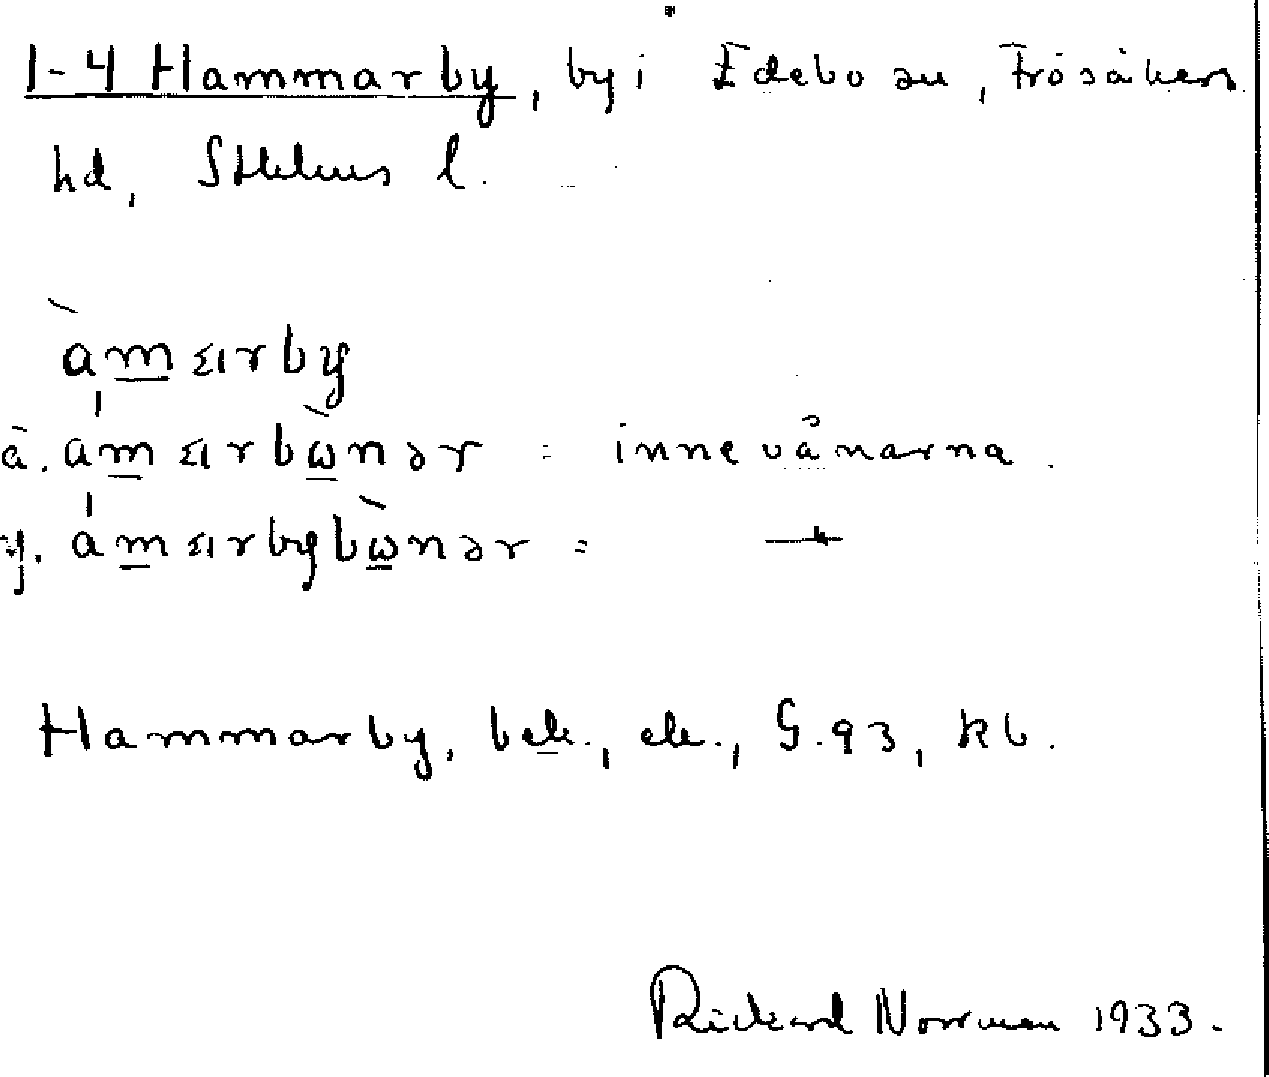 1-4 Hammarby, by i Edebo sn, Frösåkers
hd, Sthlms l.
àmarby
ä. àmarbωnər = innevånarna.
y. àmarbybωnər = —"—
Hammarby, bek., ek., G.93, kb.
Rickard Norrman 1933.